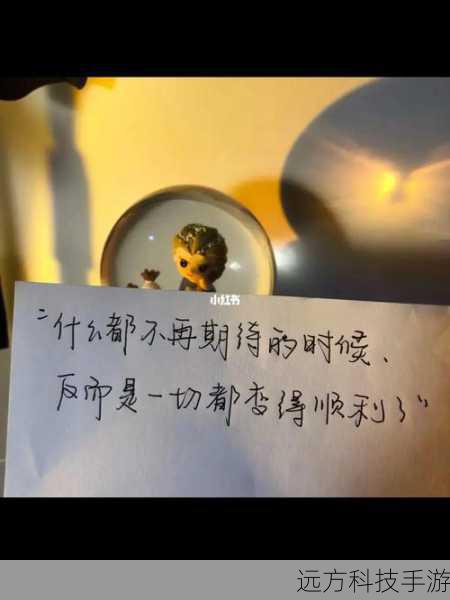 小红书
“什么都不再期待的时候、
反而是一切都变得顺利了”
远方科技手游